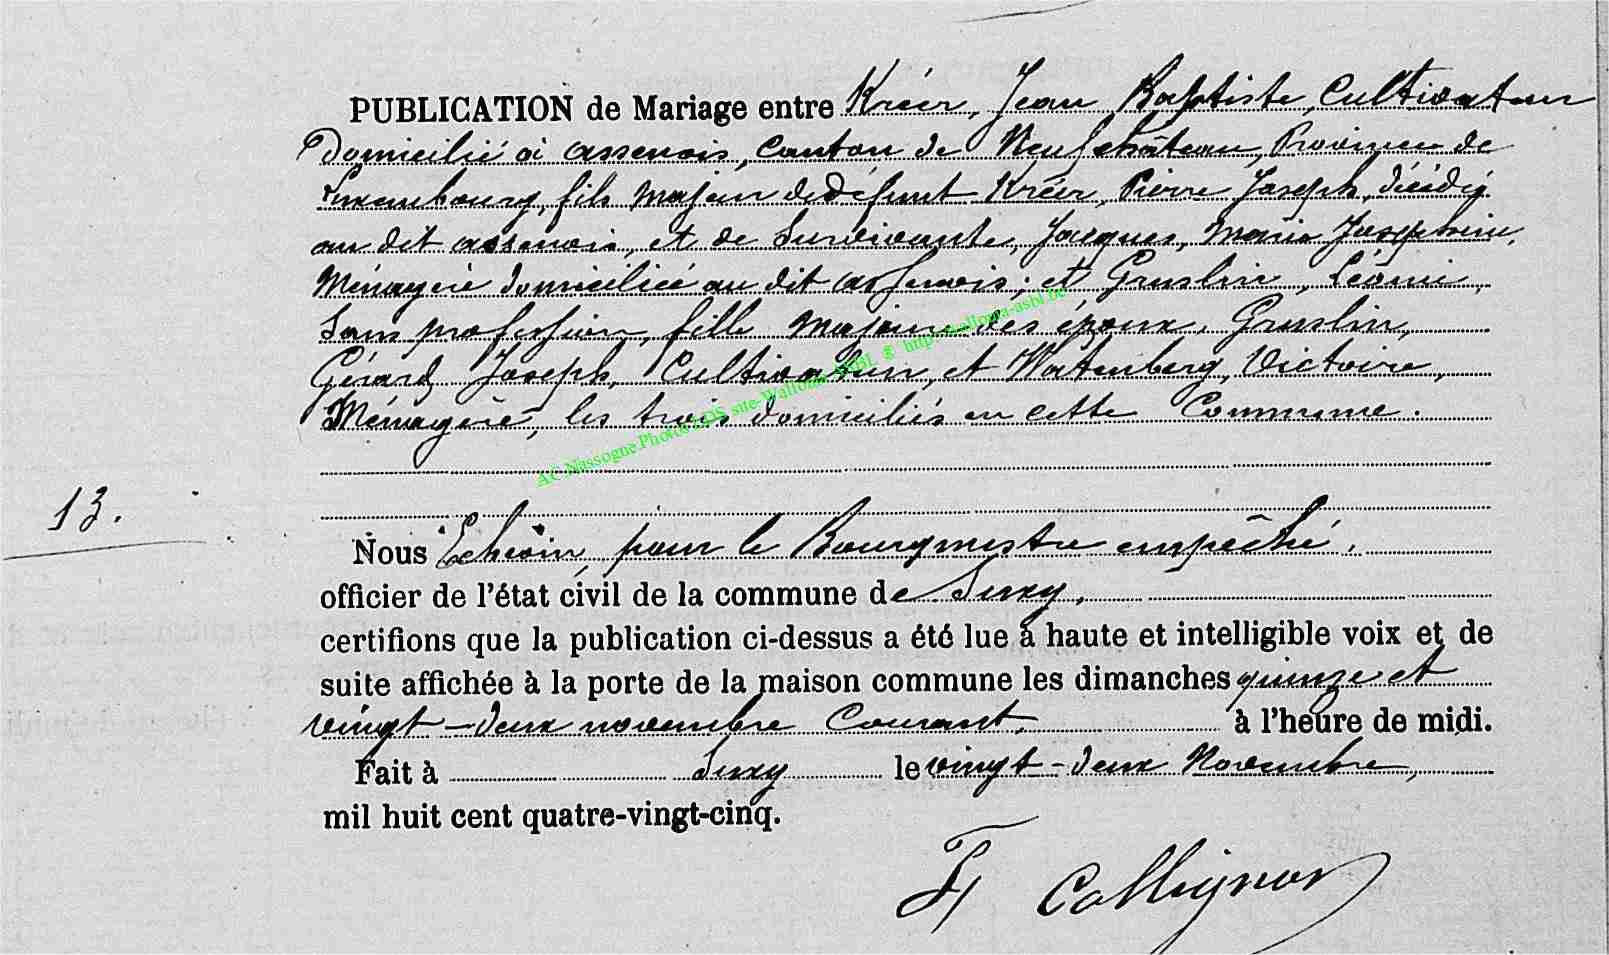 PUBLICATION de Mariage entre Kréer, Jean Baptiste, Cultivateur
Domicilié à assenois, canton de Neufchâteau, Province de
Luxembourg, fils majeur de défunt Kréer, Pierre Joseph, décédé
au dit assenois, et de Survivante, Jacques, Marie Josephine,
Ménagère domiciliée au dit assenois; et Gruslin, Léonie,
Sans profession, fille majeure des époux, Gruslin,
Gérard Joseph, Cultivateur, et Watenberg, Victoire,
Ménagère, les trois domiciliés en cette Commune.
AC Nassogne Photos LDS site-Wallonia ASBL © http://wallonia-asbl.be
13.
Nous Echevin, pour le Bourgmestre empêché,
officier de l'état civil de la commune de Suxy,
certifions que la publication ci-dessus a été lue à haute et intelligible voix et de
suite affichée à la porte de la maison commune les dimanches quinze et
vingt-deux novembre Courant, à l'heure de midi.
Fait à Suxy le vingt-deux Novembre,
mil huit cent quatre-vingt-cinq.
Collignon